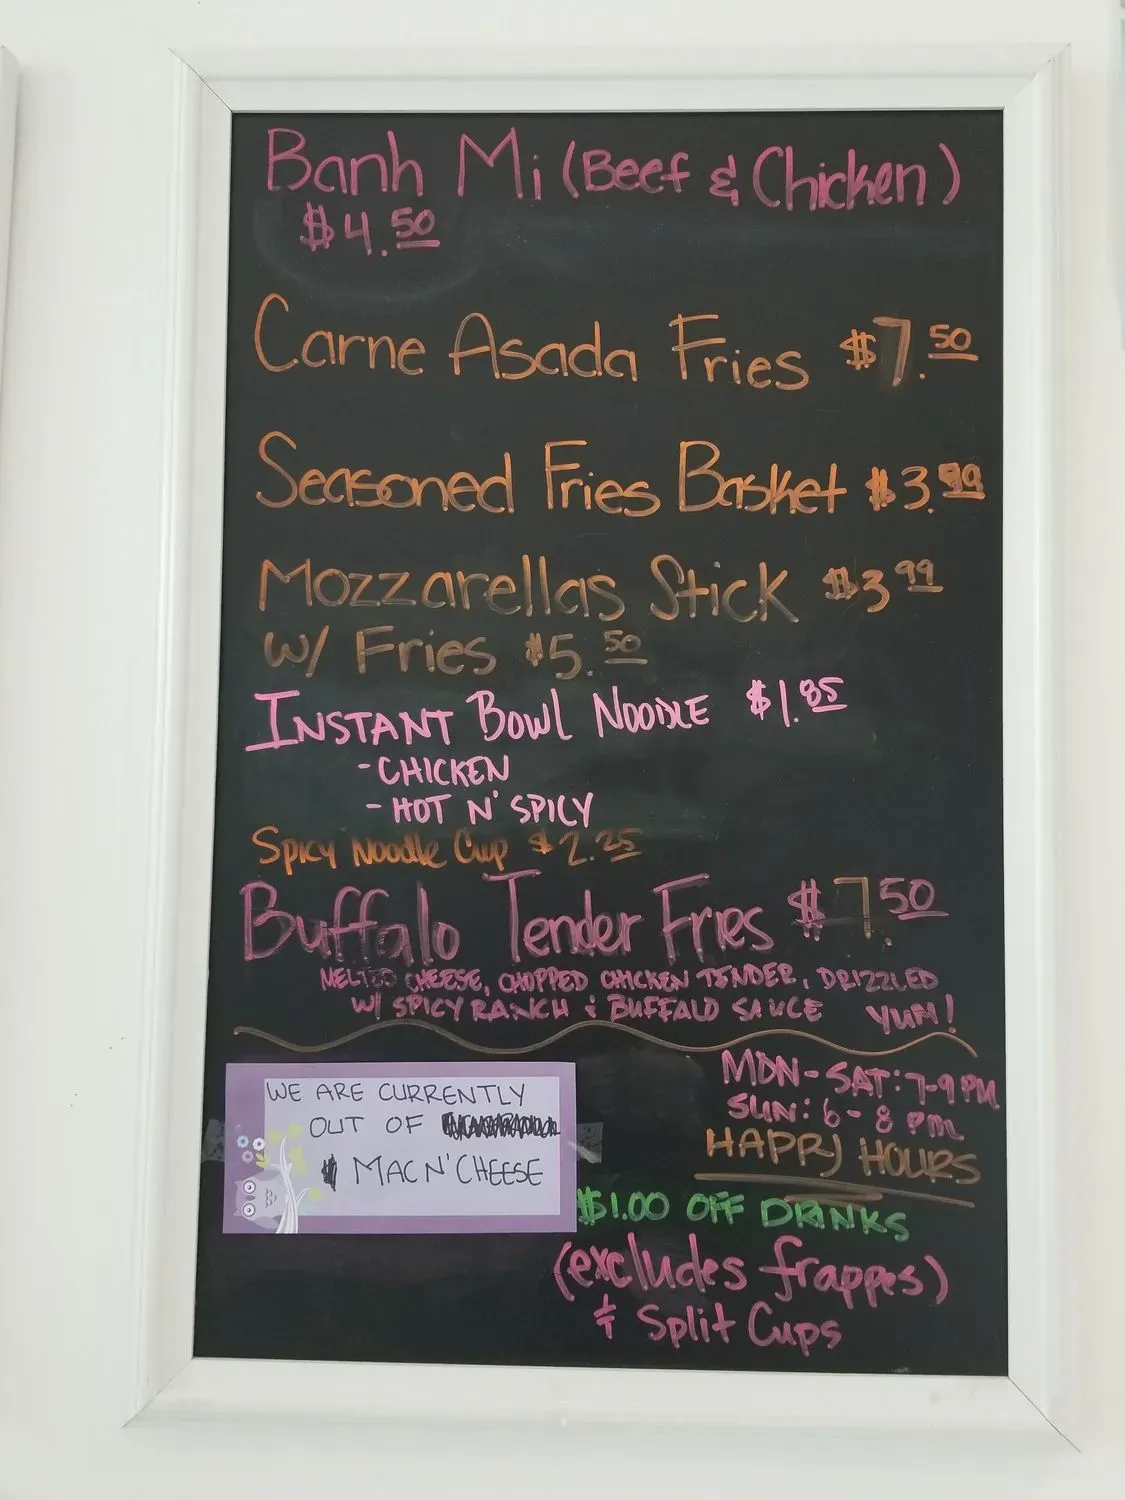 Banh Mi (Beef & Chicken)
$4.50
Carne Asada Fries $7.50
Seasoned Fries Basket $3.99
Mozzarellas Stick $3.99
w/ Fries $5.50
INSTANT BOWL NOODLE $1.85
- CHICKEN
- HOT N' SPICY
Spicy Noodle Cup $2.25
Buffalo Tender Fries $7.50
MELTED CHEESE, CHOPPED CHICKEN TENDER, DRIZZLED
W/ SPICY RANCH & BUFFALO SAUCE YUM!
WE ARE CURRENTLY
OUT OF
MAC N' CHEESE
MON-SAT: 7-9 PM
SUN: 6-8 PM
HAPPY HOURS
$1.00 OFF DRINKS
(excludes frappes)
& Split Cups